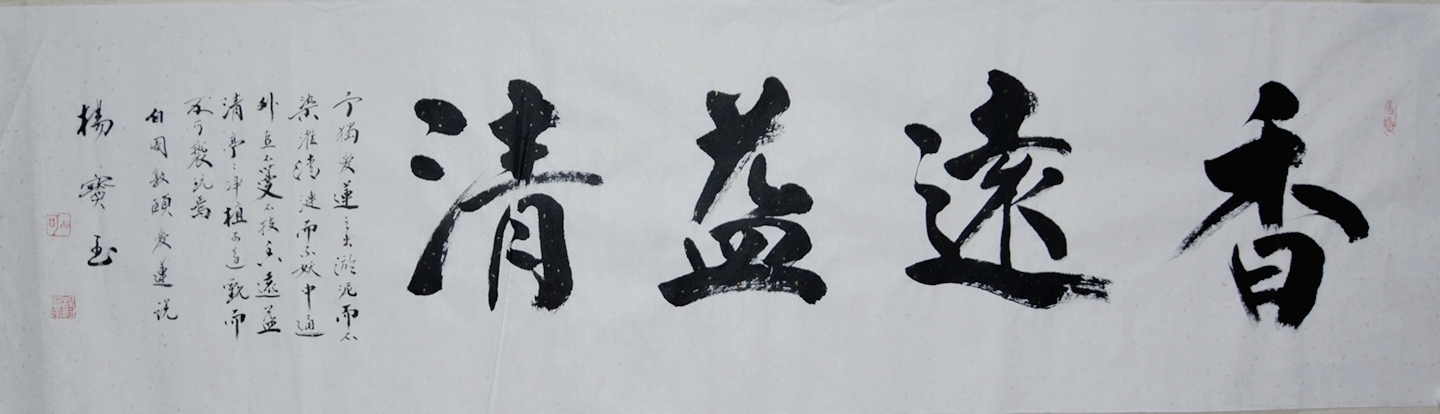 香遠益清
予獨愛蓮之出淤泥而不
染濯清漣而不妖中通
外直不蔓不枝香遠益
清亭亭淨植可遠觀而
不可褻玩焉
周敦頤愛蓮說
楊寶玉